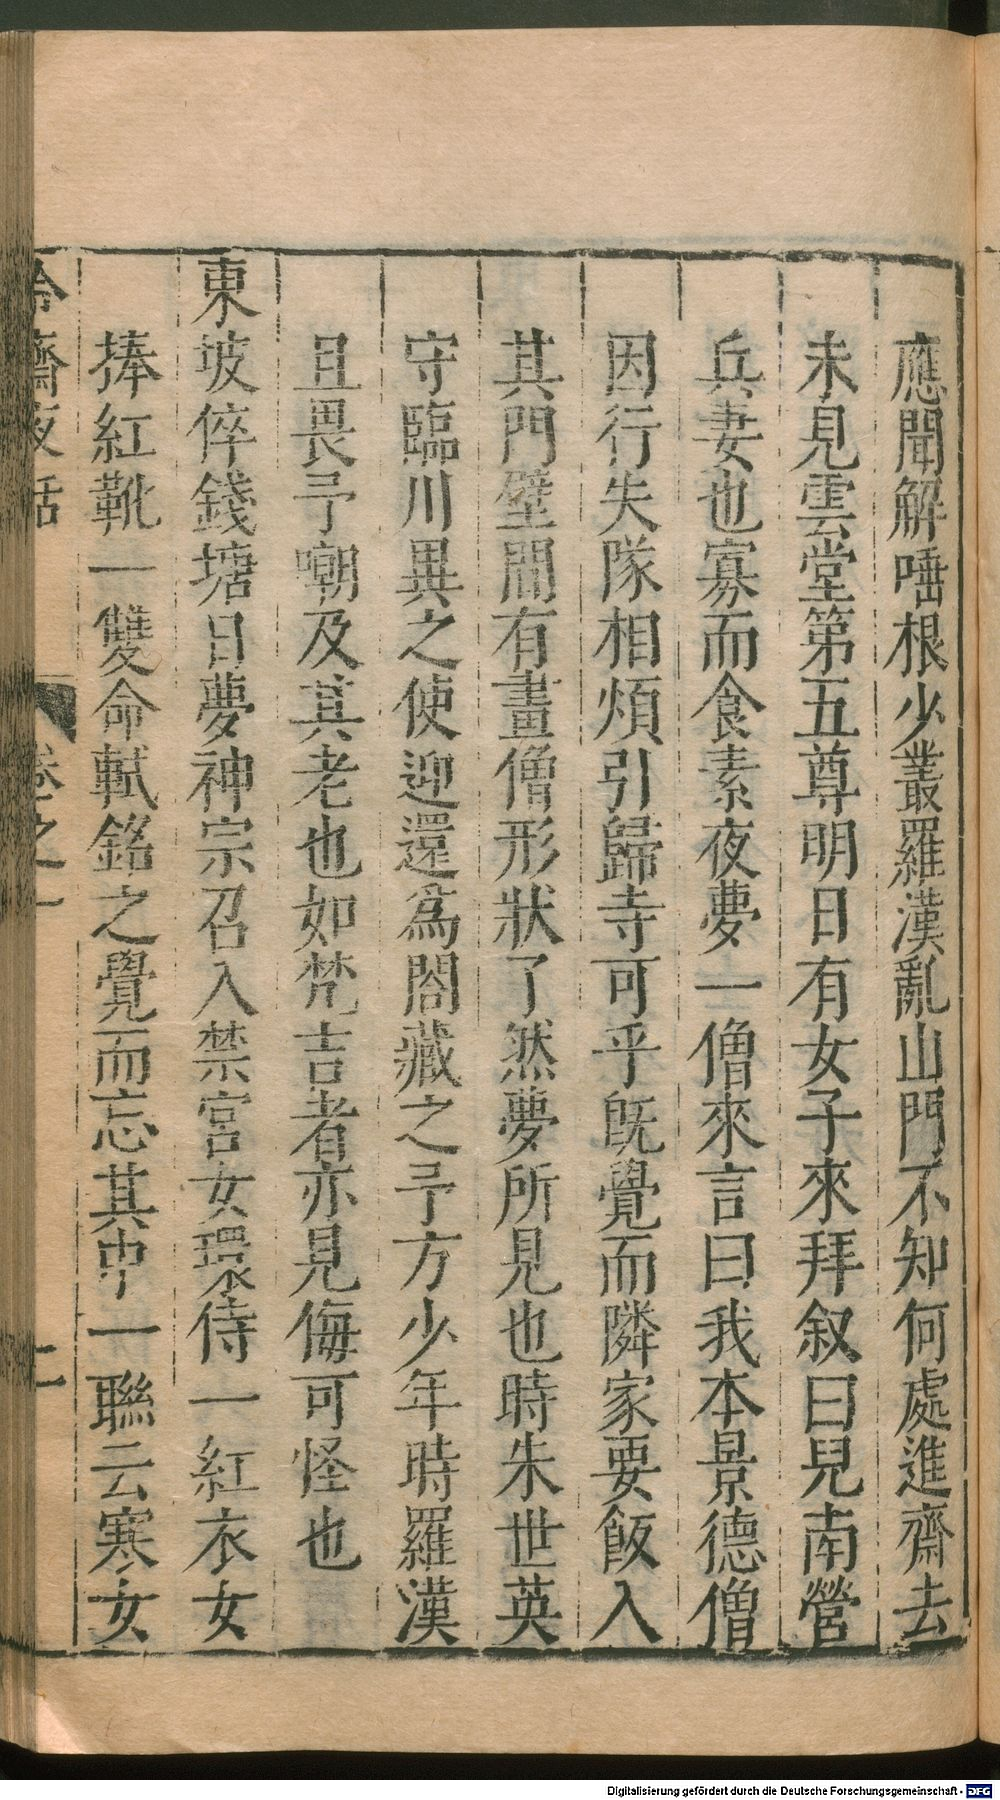 應聞解唾根少叢羅漢亂山門不知何處進齋去
未見雲堂第五尊明日有女子來拜叙曰兒南營
兵妻也寡而食素夜夢一僧來言曰我本景德僧
因行失隊相煩引歸寺可乎旣覺而隣家要飯入
其門壁間有畫僧形狀了然夢所見也時朱世英
守臨川異之使迎還爲閤藏之予方少年時羅漢
且畏予嘲及其老也如梵吉者亦見侮可怪也
東坡倅錢塘日夢神宗召入禁宮女環侍一紅衣女
捧紅靴一雙命軾銘之覺而忘其中一聯云寒女
冷齋夜話 卷之一 二
Digitalisierung gefördert durch die Deutsche Forschungsgemeinschaft - DFG